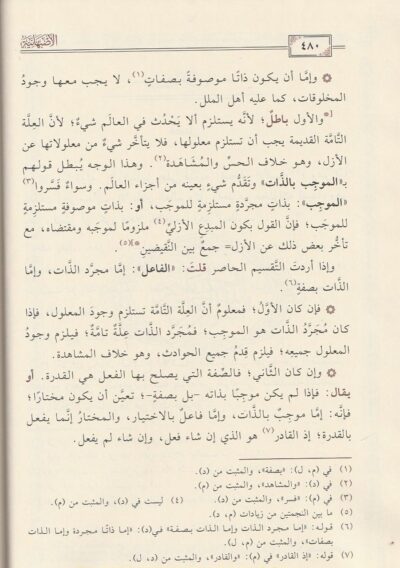 الأصبهانية
٤٨٠
۞ وإمَّا أن يكون ذاتًا موصوفةً بصفاتٍ(١)، لا يجب معها وجودُ
المخلوقات، كما عليه أهل الملل.
[*والأول باطلٌ؛ لأنَّه يستلزم ألا يَحْدُث في العالَم شيءٌ؛ لأنَّ العِلَّة
التامَّة القديمة يجب أن تستلزم معلولها، فلا يتأخَّر شيءٌ من معلولاتها عن
الأزل، وهو خلاف الحسِّ والمُشَاهَدة(٢). وهذا الوجه يُبطل قولهم
بـ«الموجِب بالذَّات» وتَقَدُّم شيءٍ بعينه من أجزاء العالَم. وسواءٌ فَسَّروا(٣)
«الموجِب»: بذاتٍ مجرَّدةٍ مستلزِمةٍ للموجَب، أو: بذاتٍ موصوفةٍ مستلزِمةٍ
للموجَب؛ فإنَّ القول بكون المبدِع الأزليِّ(٤) ملزومًا لموجَبه ومقتضاه، مع
تأخُّر بعض ذلك عن الأزل= جمعٌ بين النَّقيضين*](٥).
وإذا أردتَ التَّقسيم الحاصر قلتَ: «الفاعل»: إمَّا مجرَّد الذَّات، وإمَّا
الذَّات بصفةٍ(٦).
۞ فإن كان الأوَّلُ؛ فمعلومٌ أنَّ العِلَّة التامَّة تستلزم وجودَ المعلول، فإذا
كان مُجَرَّد الذَّات هو الموجِب؛ فمُجَرَّد الذات عِلَّةٌ تامَّةٌ؛ فيلزم وجودُ
المعلول جميعِه؛ فيلزم قِدمُ جميع الحوادث، وهو خلاف المشاهدة.
۞ وإن كان الثَّاني؛ فالصِّفة التي يصلح بها الفعل هي القدرة. أو
يقال: فإذا لم يكن موجِبًا بذاته -بل بصفةٍ-؛ تعيَّن أن يكون مختارًا؛
فإنَّه: إمَّا موجِبٌ بالذَّات، وإمَّا فاعلٌ بالاختيار، والمختارُ إنَّما يفعل
بالقدرة؛ إذ القادر(٧) هو الذي إن شاء فعل، وإن شاء لم يفعل.
(١) في (م، ل): «بصفة»، والمثبت من (د).
(٢) في (د): «والمشاهد»، والمثبت من (م).
(٣) في (م): «فسر»، والمثبت من (د). (٤) ليست في (د)، والمثبت من (م).
(٥) ما بين النجمتين من زيادات (م، د).
(٦) قوله: «إما مجرد الذات وإما الذات بصفة» في(د): «إما ذاتًا مجردة وإما الذات
بصفات»، والمثبت من (م، ل).
(٧) قوله: «إذ القادر» في (م): «والقادر»، والمثبت من (د، ل).